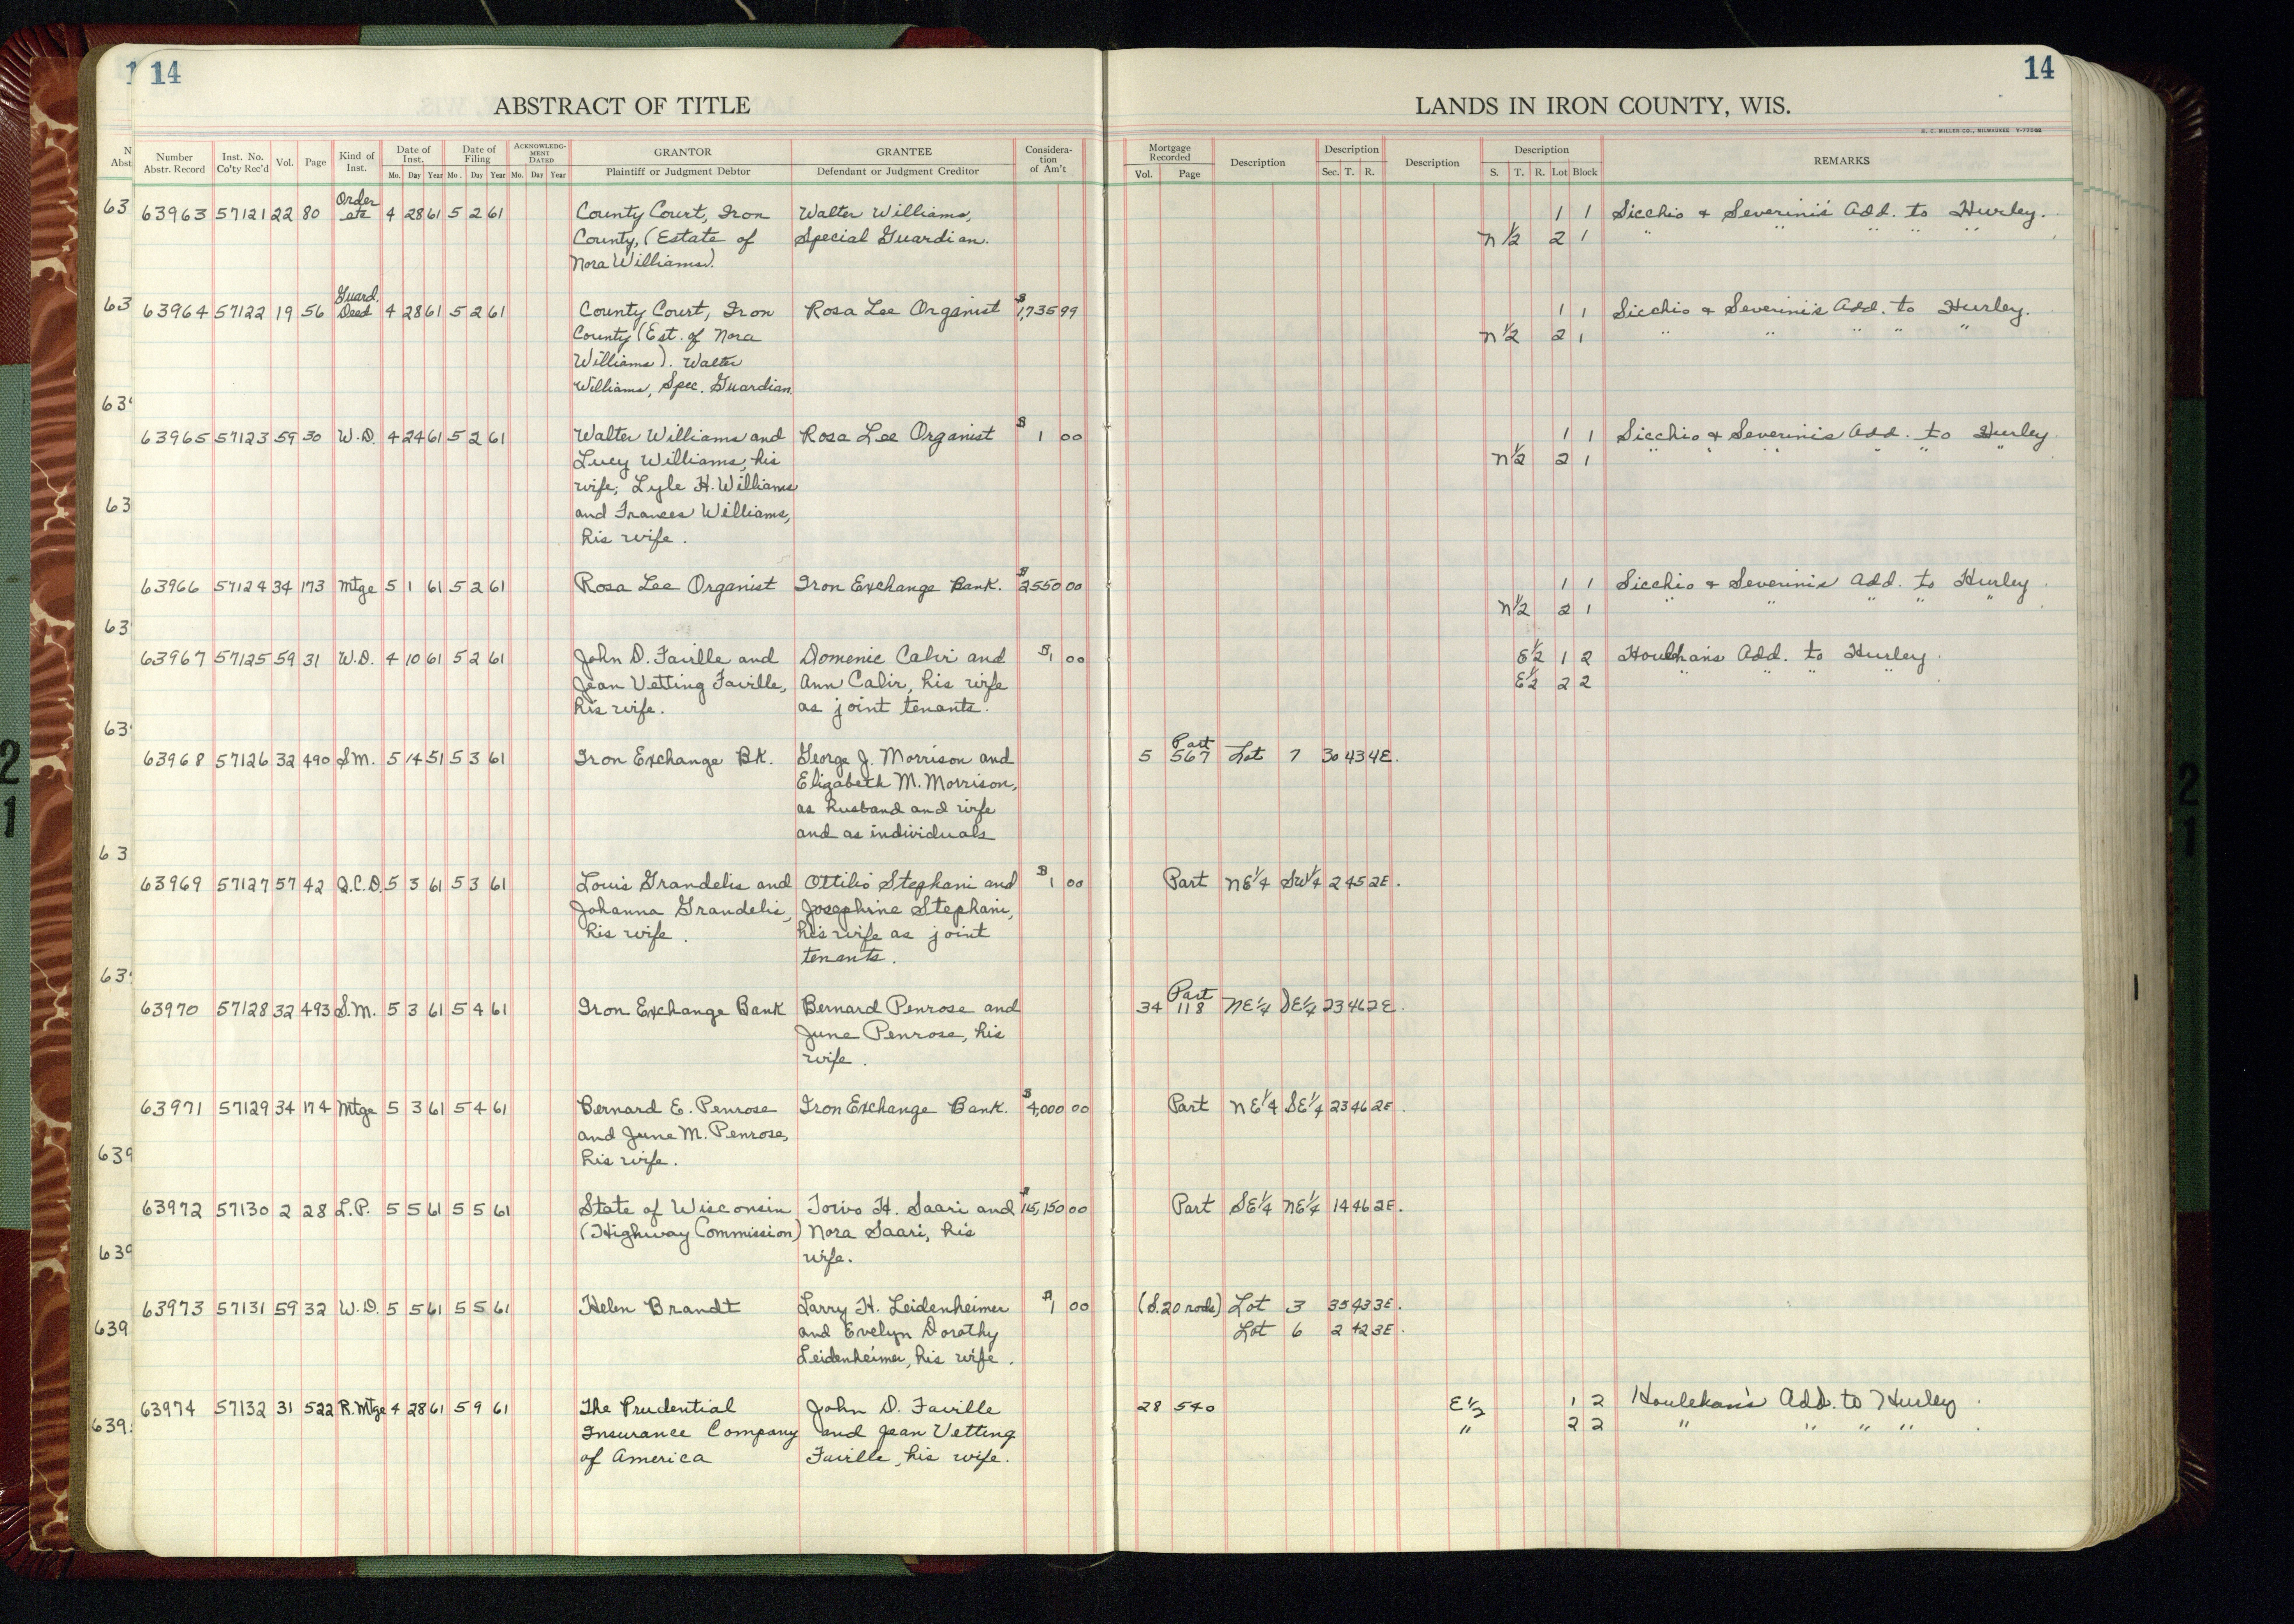 14
14
ABSTRACT OF TITLE
LANDS IN IRON COUNTY, WIS.
H. C. MILLER CO., MILWAUKEE
Number Abstr. Record Inst. No. Co'ty Rec'd Vol. Page Kind of Inst. Date of Inst. Mo. Day Year Date of Filing Mo. Day Year ACKNOWLEDGMENT DATED Mo. Day Year GRANTOR Plaintiff or Judgment Debtor GRANTEE Defendant or Judgment Creditor Consideration of Am't Mortgage Recorded Vol. Page Description Description Sec. T. R. Description Description S. T. R. Lot Block REMARKS
63963 57121 22 80 Order etc 4 28 61 5 2 61 County Court, Iron Walter Williams, 1 1 Sicchio & Severini's Add. to Hurley.
County, (Estate of Special Guardian. N 1/2 2 1 " " " " "
Nora Williams).
63964 57122 19 56 Guard. Deed 4 28 61 5 2 61 County Court, Iron Rosa Lee Organist $1,735 99 1 1 Sicchio & Severini's Add. to Hurley.
County (Est. of Nora N 1/2 2 1 " " " " "
Williams). Walter
Williams, Spec. Guardian.
63965 57123 59 30 W.D. 4 24 61 5 2 61 Walter Williams and Rosa Lee Organist $1 00 1 1 Sicchio & Severini's Add. to Hurley
Lucy Williams, his N 1/2 2 1 " " " " " "
wife; Lyle H. Williams
and Frances Williams,
his wife.
63966 57124 34 173 Mtge 5 1 61 5 2 61 Rosa Lee Organist Iron Exchange Bank. $2550 00 1 1 Sicchio & Severini's Add. to Hurley.
N 1/2 2 1 " " " " "
63967 57125 59 31 W.D. 4 10 61 5 2 61 John D. Faville and Domenic Calvi and $1 00 E 1/2 1 2 Houlehan's Add. to Hurley.
Jean Vetting Faville, Ann Calvi, his wife E 1/2 2 2 " " " "
his wife. as joint tenants.
63968 57126 32 490 S.M. 5 14 51 5 3 61 Iron Exchange Bk. George J. Morrison and 5 Part 567 Lot 7 30 43 4E.
Elizabeth M. Morrison,
as husband and wife
and as individuals
63969 57127 57 42 Q.C.D. 5 3 61 5 3 61 Louis Grandelis and Ottilio Stephani and $1 00 Part NE 1/4 SW 1/4 2 45 2E.
Johanna Grandelis, Josephine Stephani,
his wife. his wife as joint
tenants.
63970 57128 32 493 S.M. 5 3 61 5 4 61 Iron Exchange Bank Bernard Penrose and 34 Part 118 NE 1/4 SE 1/4 23 46 2E.
June Penrose, his
wife.
63971 57129 34 174 Mtge 5 3 61 5 4 61 Bernard E. Penrose Iron Exchange Bank. $4,000 00 Part NE 1/4 SE 1/4 23 46 2E.
and June M. Penrose,
his wife.
63972 57130 2 28 L.P. 5 5 61 5 5 61 State of Wisconsin Toivo H. Saari and 00 Part SE 1/4 NE 1/4 14 46 2E.
(Highway Commission) Nora Saari, his
wife.
63973 57131 59 32 W.D. 5 5 61 5 5 61 Helen Brandt Larry H. Leidenheimer $1 00 (S. 20 rods) Lot 3 35 43 3E.
and Evelyn Dorothy Lot 6 2 42 3E.
Leidenheimer, his wife.
63974 57132 31 522 R.Mtge 4 28 61 5 9 61 The Prudential John D. Faville 28 540 E 1/2 1 2 Houlehan's Add. to Hurley.
Insurance Company and Jean Vetting " 2 2 " " " " .
of America Faville, his wife.